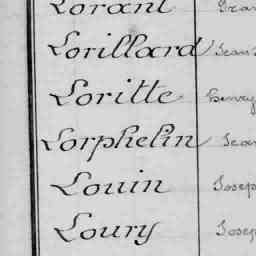 Lorant
Lorillard Jean
Loritte Henry
Lorphelin Jean
Louin Josep
Loury Josep